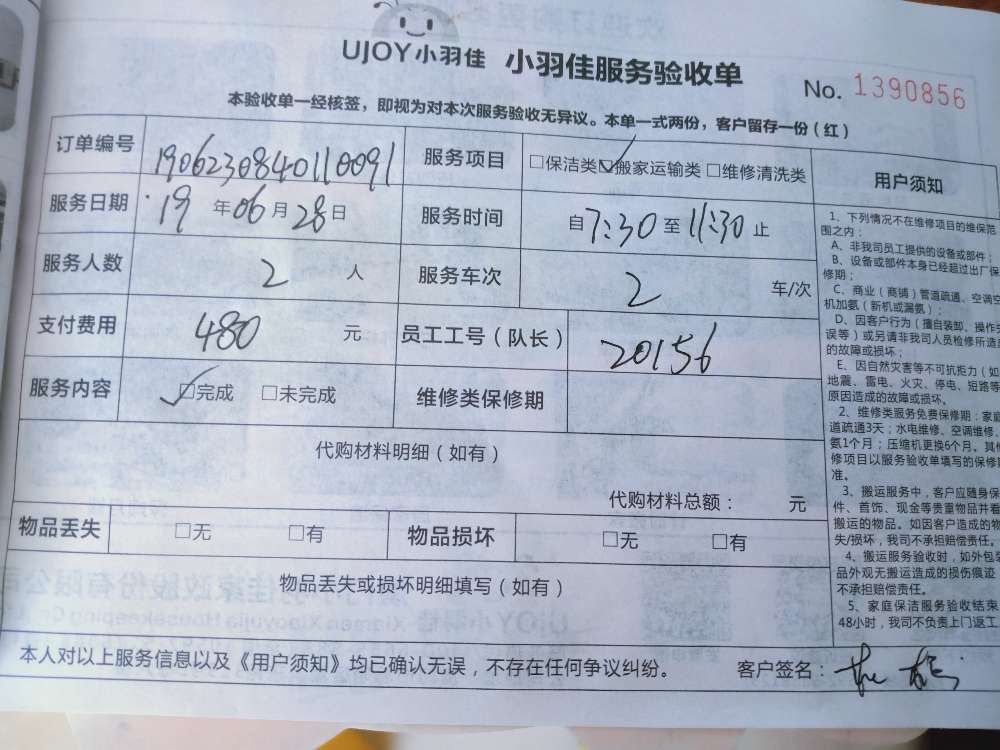 UJOY小羽佳 小羽佳服务验收单 No. 1390856
本验收单一经核签，即视为对本次服务验收无异议。本单一式两份，客户留存一份（红）
订单编号 190623084011009 服务项目 □保洁类 ☑搬家运输类 □维修清洗类
服务日期 19 年 06 月 28 日 服务时间 自 7:30 至 11:30 止
服务人数 2 人 服务车次 2 车/次
支付费用 480 元 员工工号（队长） 20156
服务内容 ☑完成 □未完成 维修类保修期
代购材料明细（如有）
代购材料总额： 元
物品丢失 □无 □有 物品损坏 □无 □有
物品丢失或损坏明细填写（如有）
本人对以上服务信息以及《用户须知》均已确认无误，不存在任何争议纠纷。 客户签名：
用户须知
1、下列情况不在维修项目的维保范
围之内：
A、非我司员工提供的设备或部件；
B、设备或部件本身已经超过出厂保
修期；
C、商业（商铺）管道疏通、空调空
机加氨（新机或漏氨）；
D、因客户行为（擅自装卸、操作失
误等）或另请非我司人员检修所造成
的故障或损坏；
E、因自然灾害等不可抗拒力（如
地震、雷电、火灾、停电、短路等
原因造成的故障或损坏。
2、维修类服务免费保修期：家庭
道疏通3天；水电维修、空调维修、
氨1个月；压缩机更换6个月。其他
修项目以服务验收单填写的保修期
准。
3、搬运服务中，客户应随身保
件、首饰、现金等贵重物品并看
搬运的物品。如因客户造成的物
失/损坏，我司不承担赔偿责任。
4、搬运服务验收时，如外包装
品外观无搬运造成的损伤痕迹
不承担赔偿责任。
5、家庭保洁服务验收结束
48小时，我司不负责上门返工